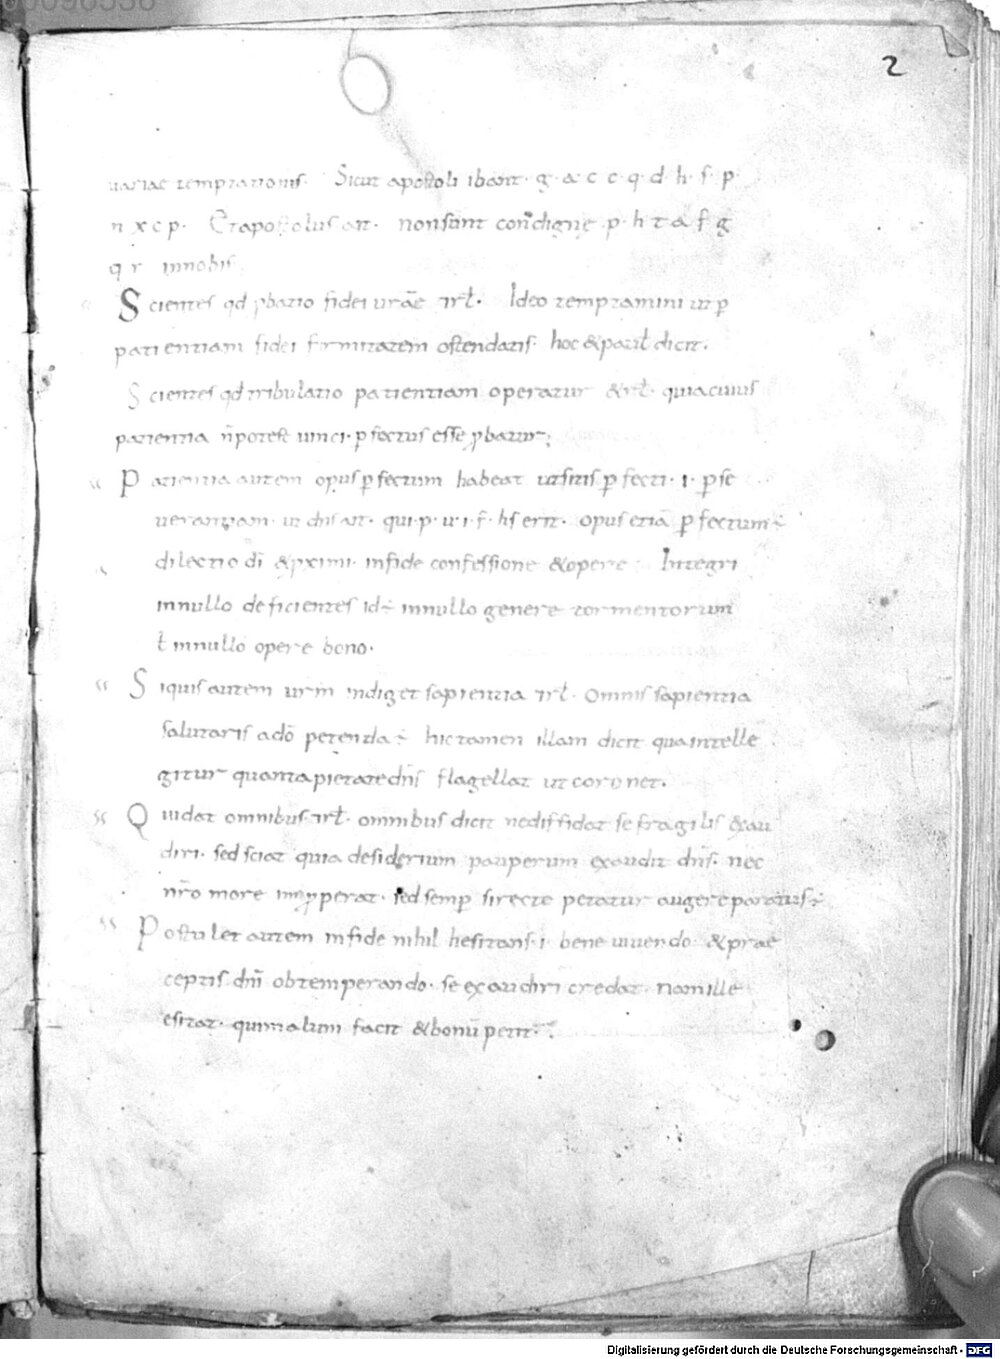 2
uariae temptationis. Sicut apostoli ibant. g. a. c c. q. d. h. s. p.
n x c p. Et apostolus ait. non sunt condigne p. h t a f g
q r in nobis.
Scientes qd ꝓbatio fidei urae rł. Ideo temptamini ut ꝑ
patientiam fidei firmitatem ostendatis. hoc & paul dicit.
Scientes qd tribulatio patientiam operatur & rł. quia cuius
patientia n̄ potest uinci. ꝑfectus esse ꝓbatur;
Patientia autem opus ꝑfectum habeat ut sitis ꝑfecti. i. ꝑse
uerantiam. ut dns ait. qui. p. u. i. f. hs erit. opus etiā ꝑfectum ÷
dilectio di & ꝓximi. in fide confessione & opere. Integri
in nullo deficientes id ÷ in nullo genere tormentorum
ł in nullo opere bono.
Siquis autem urm indiget sapientia rł. Omnis sapientia
salutaris a dō petenda ÷ hic tamen illam dicit qua intelle
gitur quanta pietate dns flagellat ut coronet.
Qui dat omnibus rł. omnibus dicit ne diffidat se fragilis exau
diri. sed sciat quia desiderium pauperum exaudit dns. nec
nro more inꝓperat. sed semꝑ si recte petatur augere paratus ÷
Postulet autem in fide nihil hesitans. i. bene uiuendo & prae
ceptis dni obtemperando. se exaudiri credat. nam ille
esitat. qui malum facit & bonū petit.
Digitalisierung gefördert durch die Deutsche Forschungsgemeinschaft - DFG